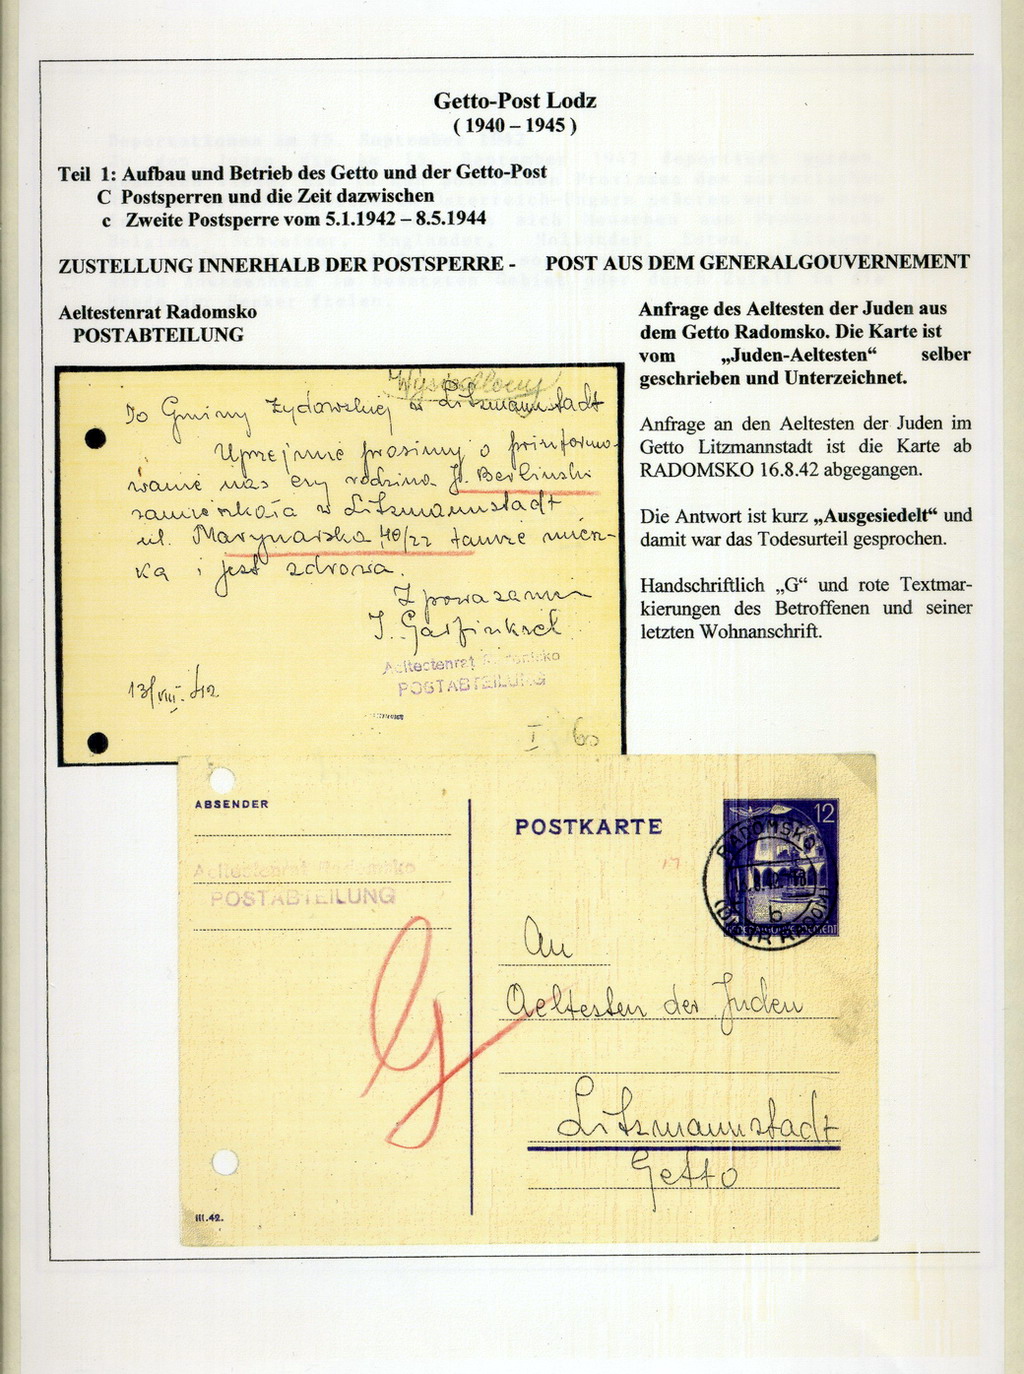 Getto-Post Lodz
( 1940 – 1945 )
Teil 1: Aufbau und Betrieb des Getto und der Getto-Post
C Postsperren und die Zeit dazwischen
c Zweite Postsperre vom 5.1.1942 – 8.5.1944
ZUSTELLUNG INNERHALB DER POSTSPERRE - POST AUS DEM GENERALGOUVERNEMENT
Aeltestenrat Radomsko
POSTABTEILUNG
Anfrage des Aeltesten der Juden aus
dem Getto Radomsko. Die Karte ist
vom „Juden-Aeltesten“ selber
geschrieben und Unterzeichnet.
Anfrage an den Aeltesten der Juden im
Getto Litzmannstadt ist die Karte ab
RADOMSKO 16.8.42 abgegangen.
Die Antwort ist kurz „Ausgesiedelt“ und
damit war das Todesurteil gesprochen.
Handschriftlich „G“ und rote Textmar-
kierungen des Betroffenen und seiner
letzten Wohnanschrift.
Wysiedlony
Do Gminy Żydowskiej w Litzmannstadt
Uprzejmie prosimy o poinformo-
wanie nas czy rodzina J. Berlinski
zamieszkała w Litzmannstadt
ul. Marynarska 40/22 tamże miesz-
ka i jest zdrowa.
Z poważaniem
J. Garfinkiel
Aeltestenrat Radomsko
POSTABTEILUNG
13/VIII. 42
I 60
ABSENDER
POSTKARTE
12
RADOMSKO
b
(DISTR RADOM)
GENERALGOUVERNEMENT
17
Aeltestenrat Radomsko
POSTABTEILUNG
G
An
Aeltesten der Juden
Litzmannstadt
Getto
III.42.